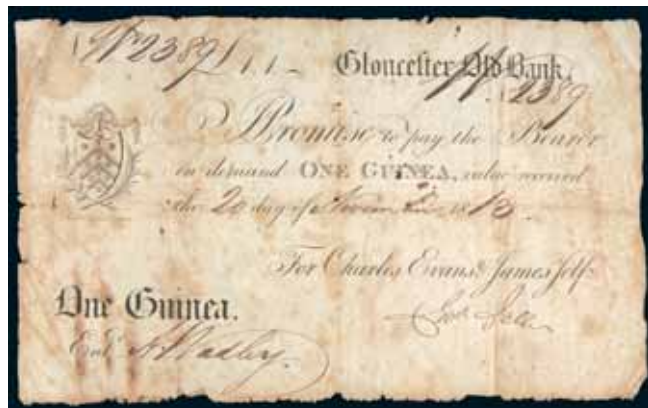 No 2389 £1.1.- Gloucester Old Bank.
No 2389
I Promise to pay the Bearer
on demand ONE GUINEA, value received
the 20 day of November 1813.
For Charles Evans & James Jelf
One Guinea.
Entd.